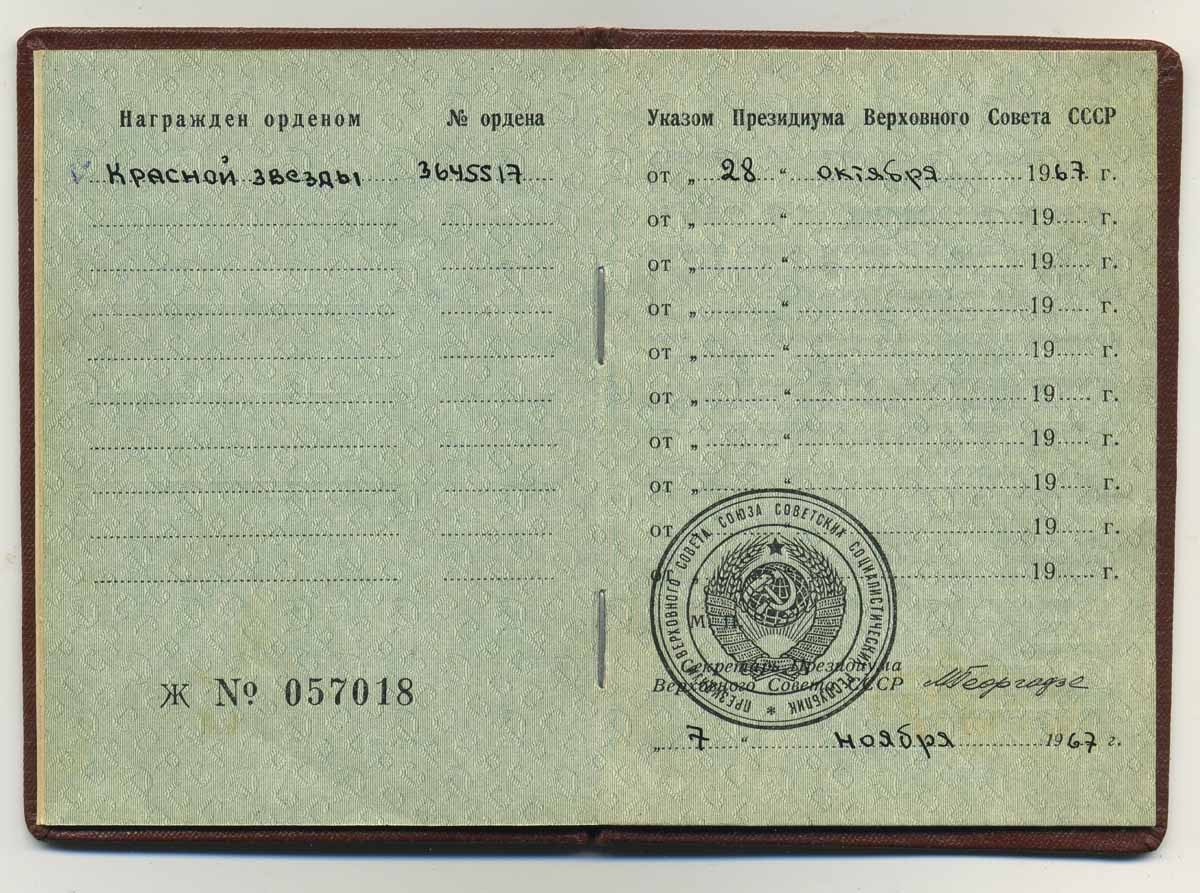 Награжден орденом
№ ордена
Красной звезды
3645517
Ж № 057018
Указом Президиума Верховного Совета СССР
от „ 28 “ октября 1967 г.
от „ “ 19 г.
от „ “ 19 г.
от „ “ 19 г.
от „ “ 19 г.
от „ “ 19 г.
от „ “ 19 г.
от „ “ 19 г.
от „ “ 19 г.
от „ “ 19 г.
ПРЕЗИДИУМ ВЕРХОВНОГО СОВЕТА СОЮЗА СОВЕТСКИХ СОЦИАЛИСТИЧЕСКИХ РЕСПУБЛИК *
М. П.
Секретарь Президиума
Верховного Совета СССР
МГеоргадзе
„ 7 “ ноября 1967 г.